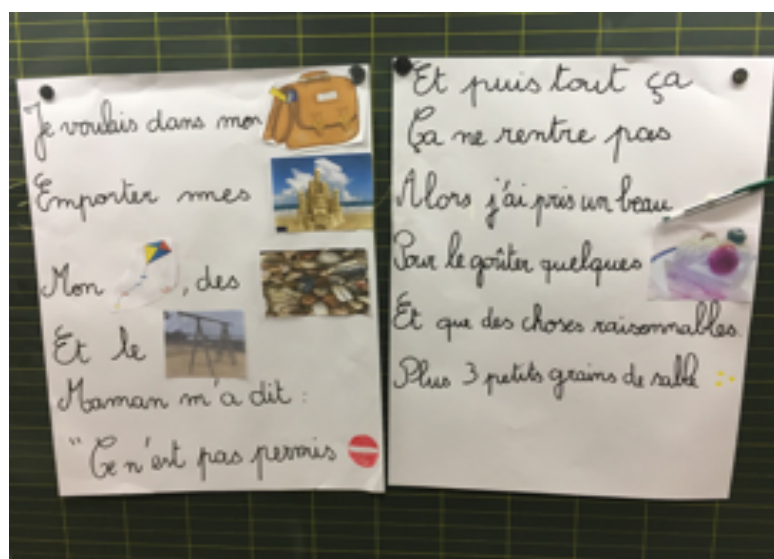 Je voulais dans mon
Emporter mes
Mon , des
Et le
Maman m'a dit :
"Ce n'est pas permis
Et puis tout ça
Ça ne rentre pas
Alors j'ai pris un beau
Pour le goûter quelques
Et que des choses raisonnables.
Plus 3 petits grains de sable